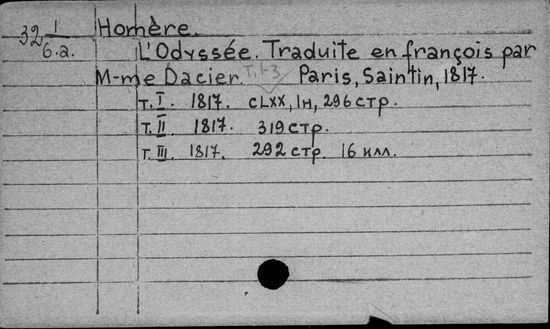 32 1/6.a. Homère.
L'Odyssée. Traduite en françois par
M-me Dacier. T. 1-3 Paris, Saintin, 1817.
т. I. 1817. CLXX, 1н, 296 стр.
т. II 1817. 319 стр.
т. III. 1817. 292 стр. 16 илл.